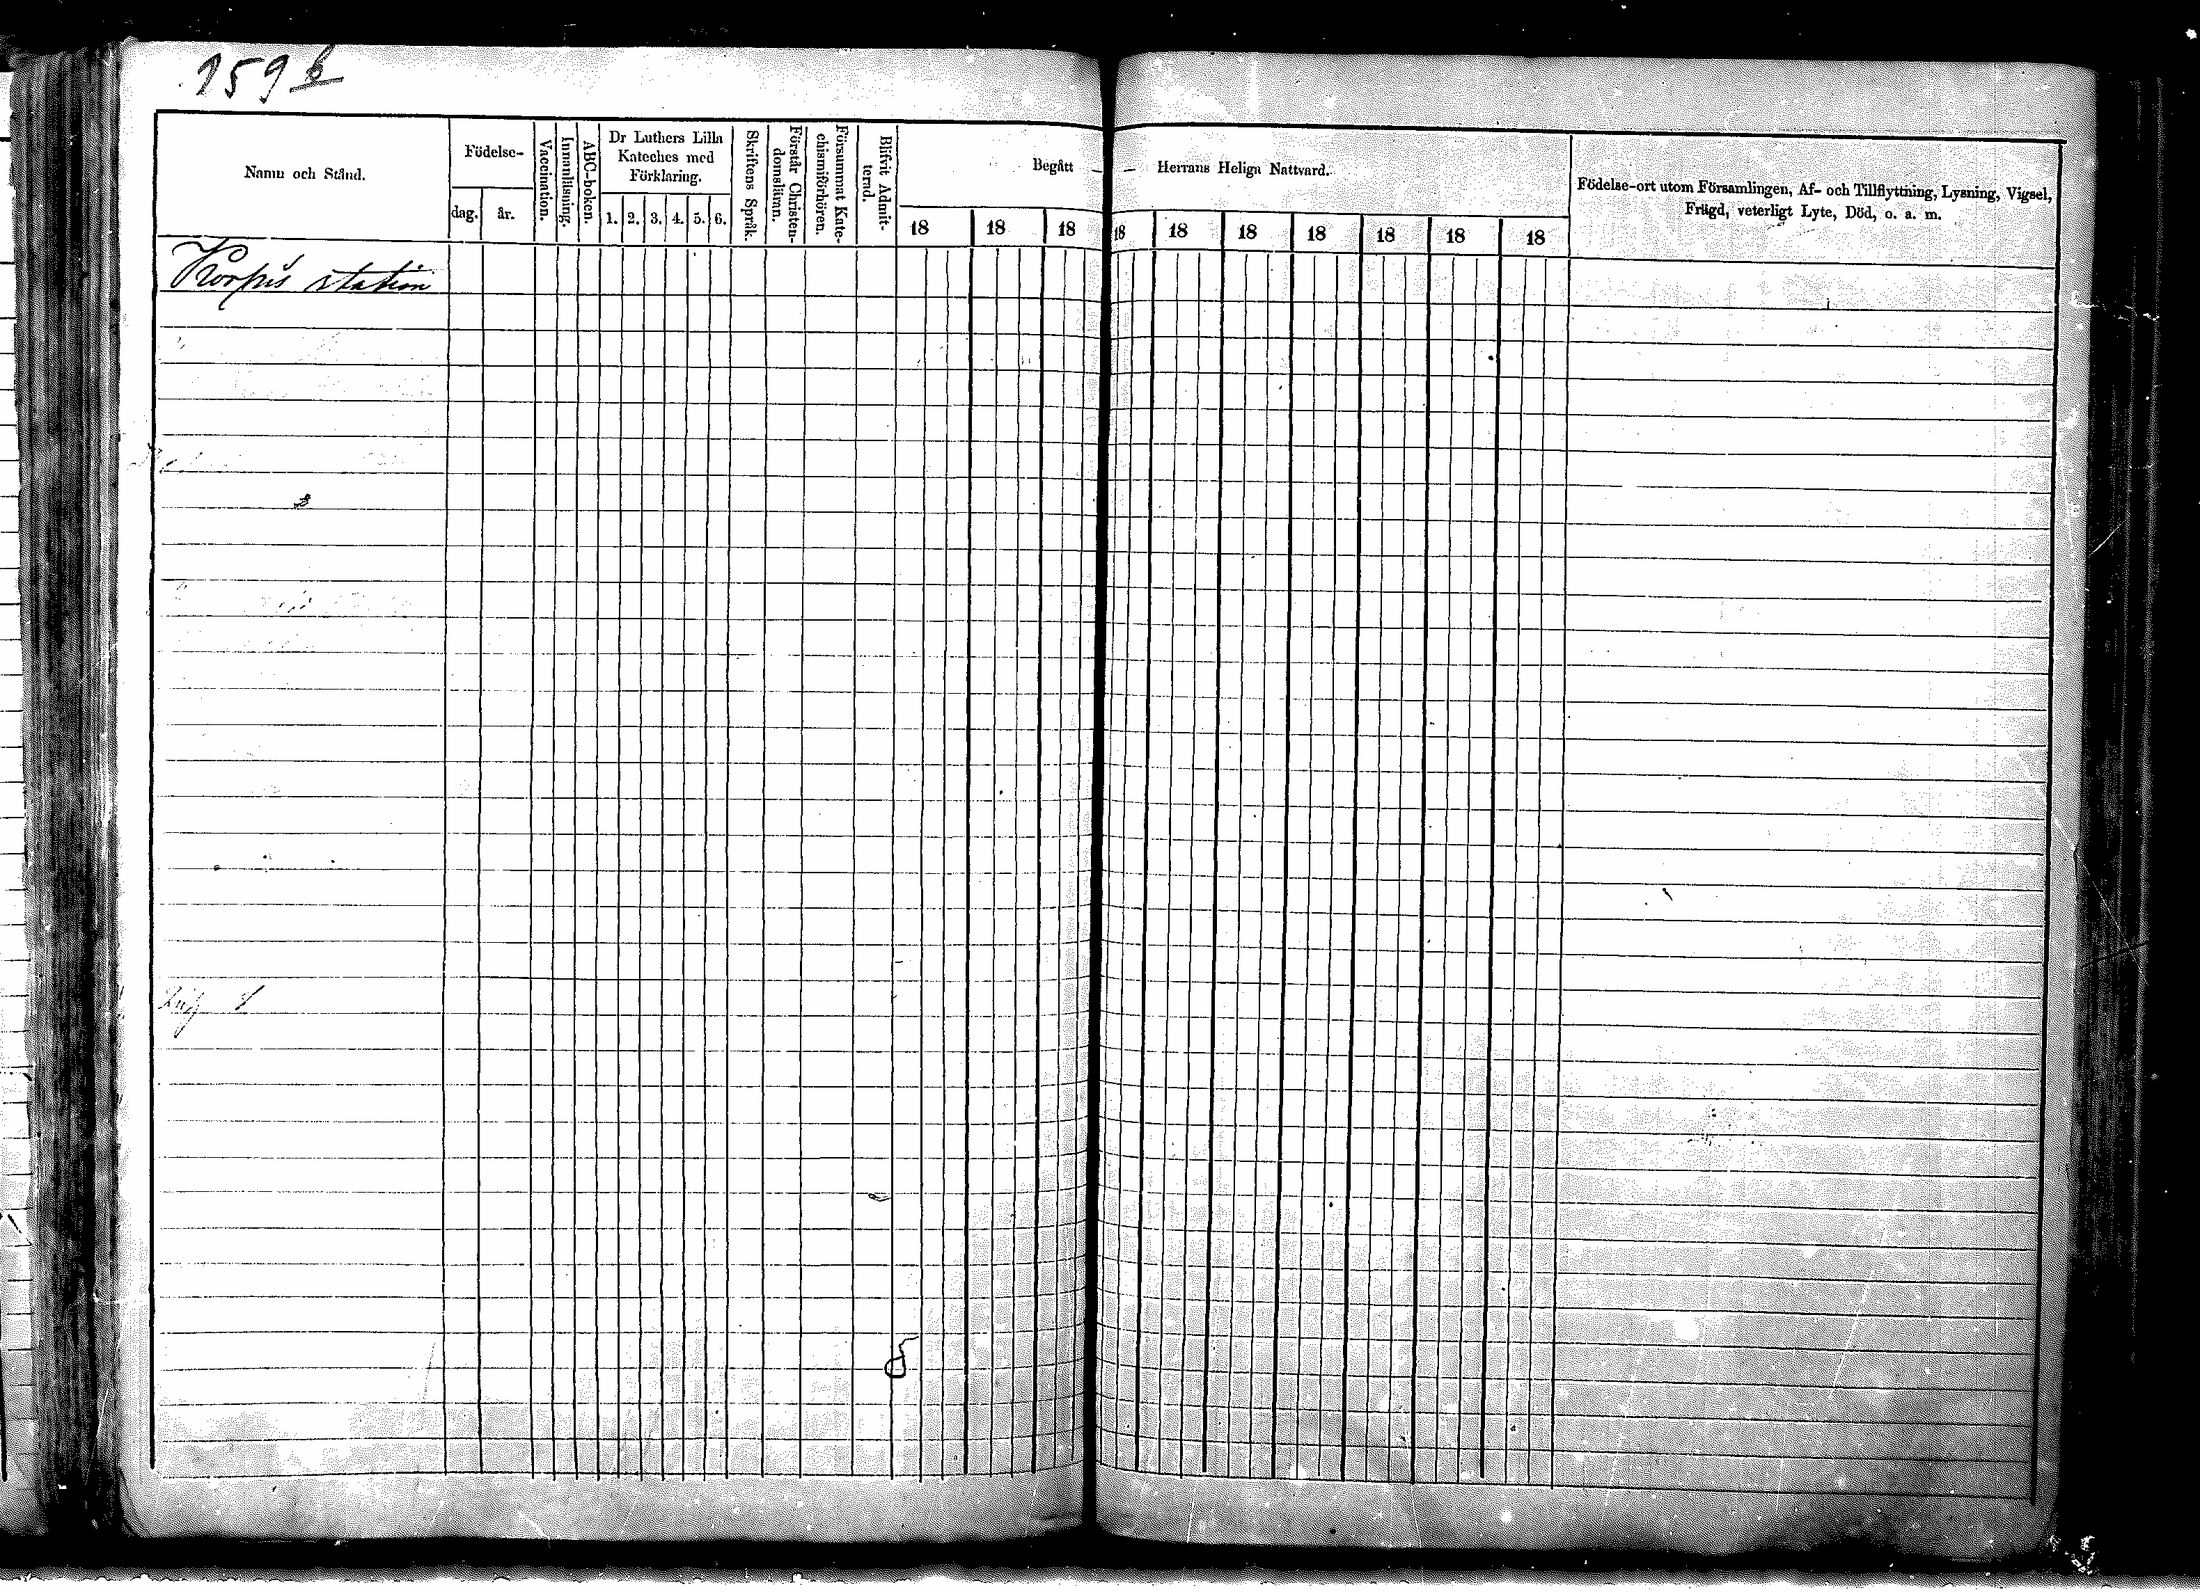 159 b
Namn och Stånd.
Födelse-
dag.
år.
Vaccination.
Innanläsning.
ABC-boken.
Dr Luthers Lilla
Kateches med
Förklaring.
1. 2. 3. 4. 5. 6.
Skriftens Språk.
Förstår Christen-
domsläran.
Försummat Kate-
chismiförhören.
Blifvit Admit-
terad.
Begått — — Herrans Heliga Nattvard.
18 18 18 18 18 18 18 18 18 18
Födelse-ort utom Församlingen, Af- och Tillflyttning, Lysning, Vigsel,
Frägd, veterligt Lyte, Död, o. a. m.
Korpis station